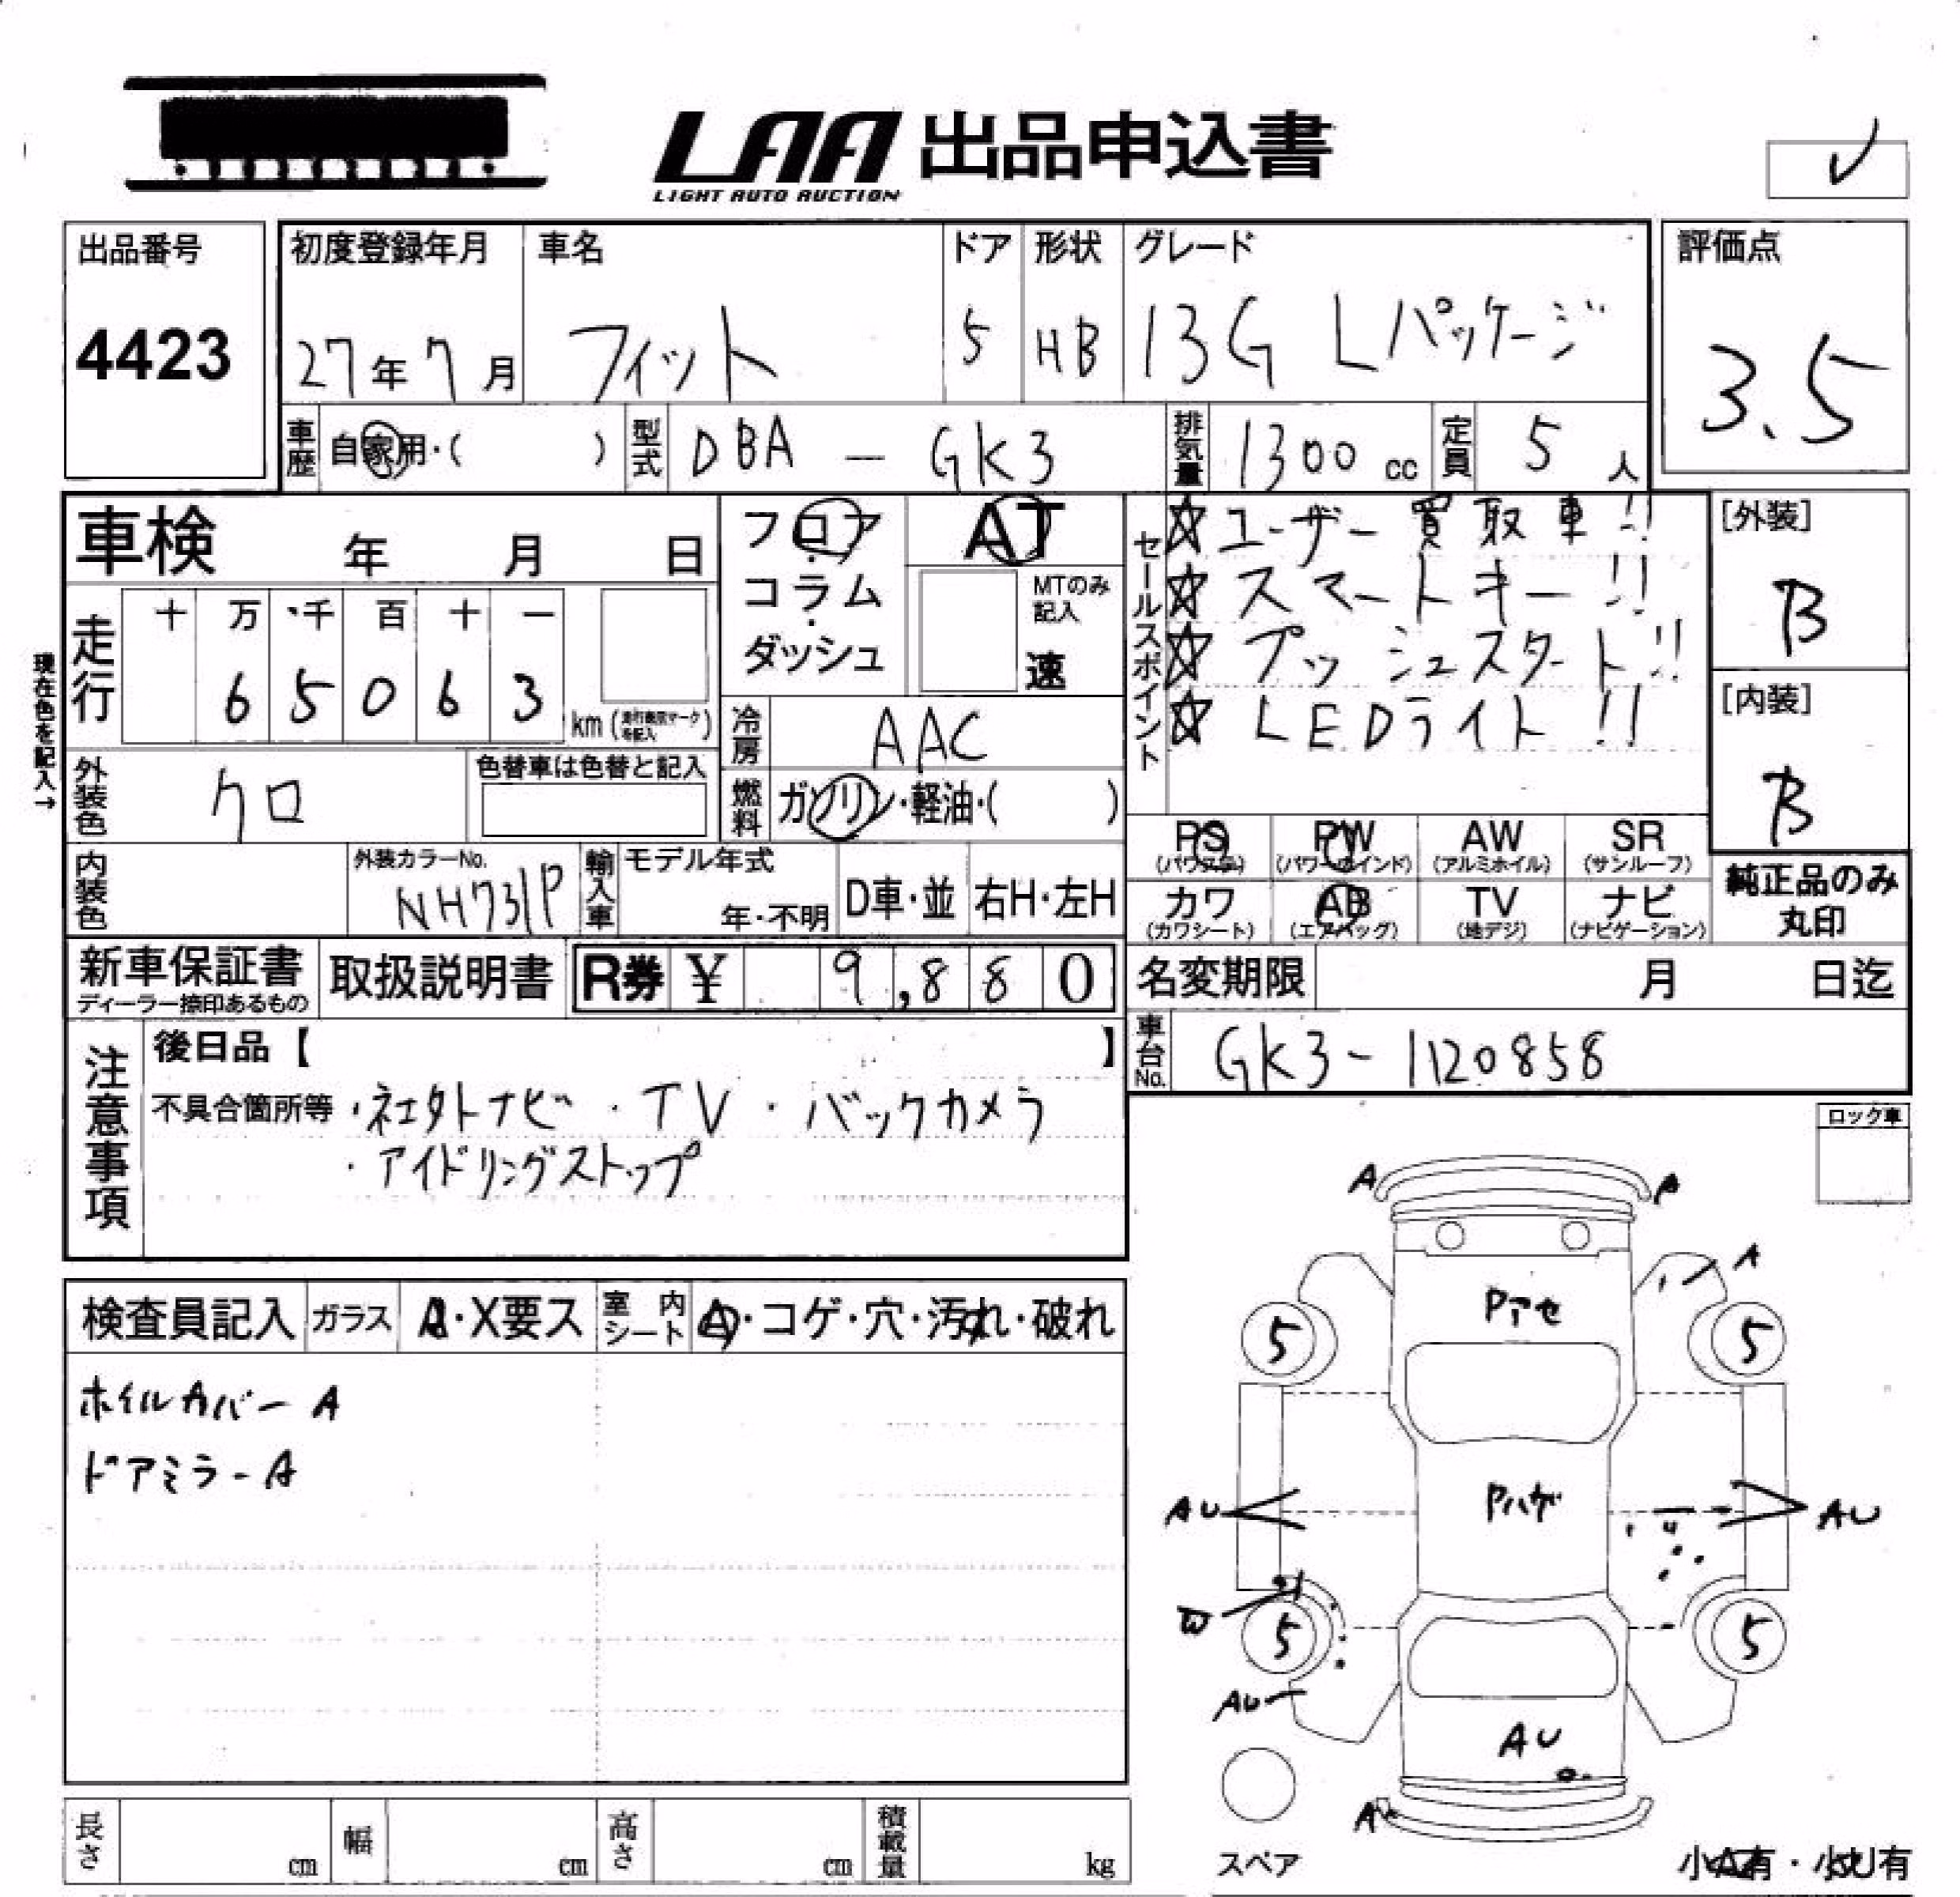 LAA 出品申込書
LIGHT AUTO AUCTION
出品番号
4423
初度登録年月
27年7月
車名
フィット
ドア
5
形状
HB
グレード
13G Lパッケージ
評価点
3.5
車歴 自家用・( )
型式 DBA - GK3
排気量 1300 cc
定員 5 人
車検 年 月 日
フロア
コラム
ダッシュ
AT
MTのみ記入
速
セールスポイント
☆ユーザー買取車!!
☆スマートキー!!
☆プッシュスタート!!
☆LEDライト!!
[外装]
B
[内装]
B
現在色を記入→
走行
十 万 千 百 十 一
6 5 0 6 3 km
冷房 AAC
燃料 ガソリン・軽油・( )
外装色 クロ
色替車は色替と記入
内装色
外装カラーNo.
NH731P
輸入車
モデル年式
年・不明
D車・並
右H・左H
PS PW AW SR
(パワステ) (パワーウインド) (アルミホイル) (サンルーフ)
カワ AB TV ナビ
(カワシート) (エアバッグ) (地デジ) (ナビゲーション)
純正品のみ
丸印
新車保証書
ディーラー捺印あるもの
取扱説明書
R券 ¥ 9,880
名変期限 月 日迄
車台No. GK3-1120858
注意事項
後日品【 】
不具合箇所等 ・社外ナビ・TV・バックカメラ
・アイドリングストップ
ロック車
検査員記入
ガラス
A・X要ス
室内シート
A・コゲ・穴・汚れ・破れ
ホイルカバーA
ドアミラーA
A A
A
Pアセ
5 5
Pハゲ
AU AU
W
5 5
AU
AU
A
スペア
小A有・小U有
長さ cm
幅 cm
高さ cm
積載量 kg